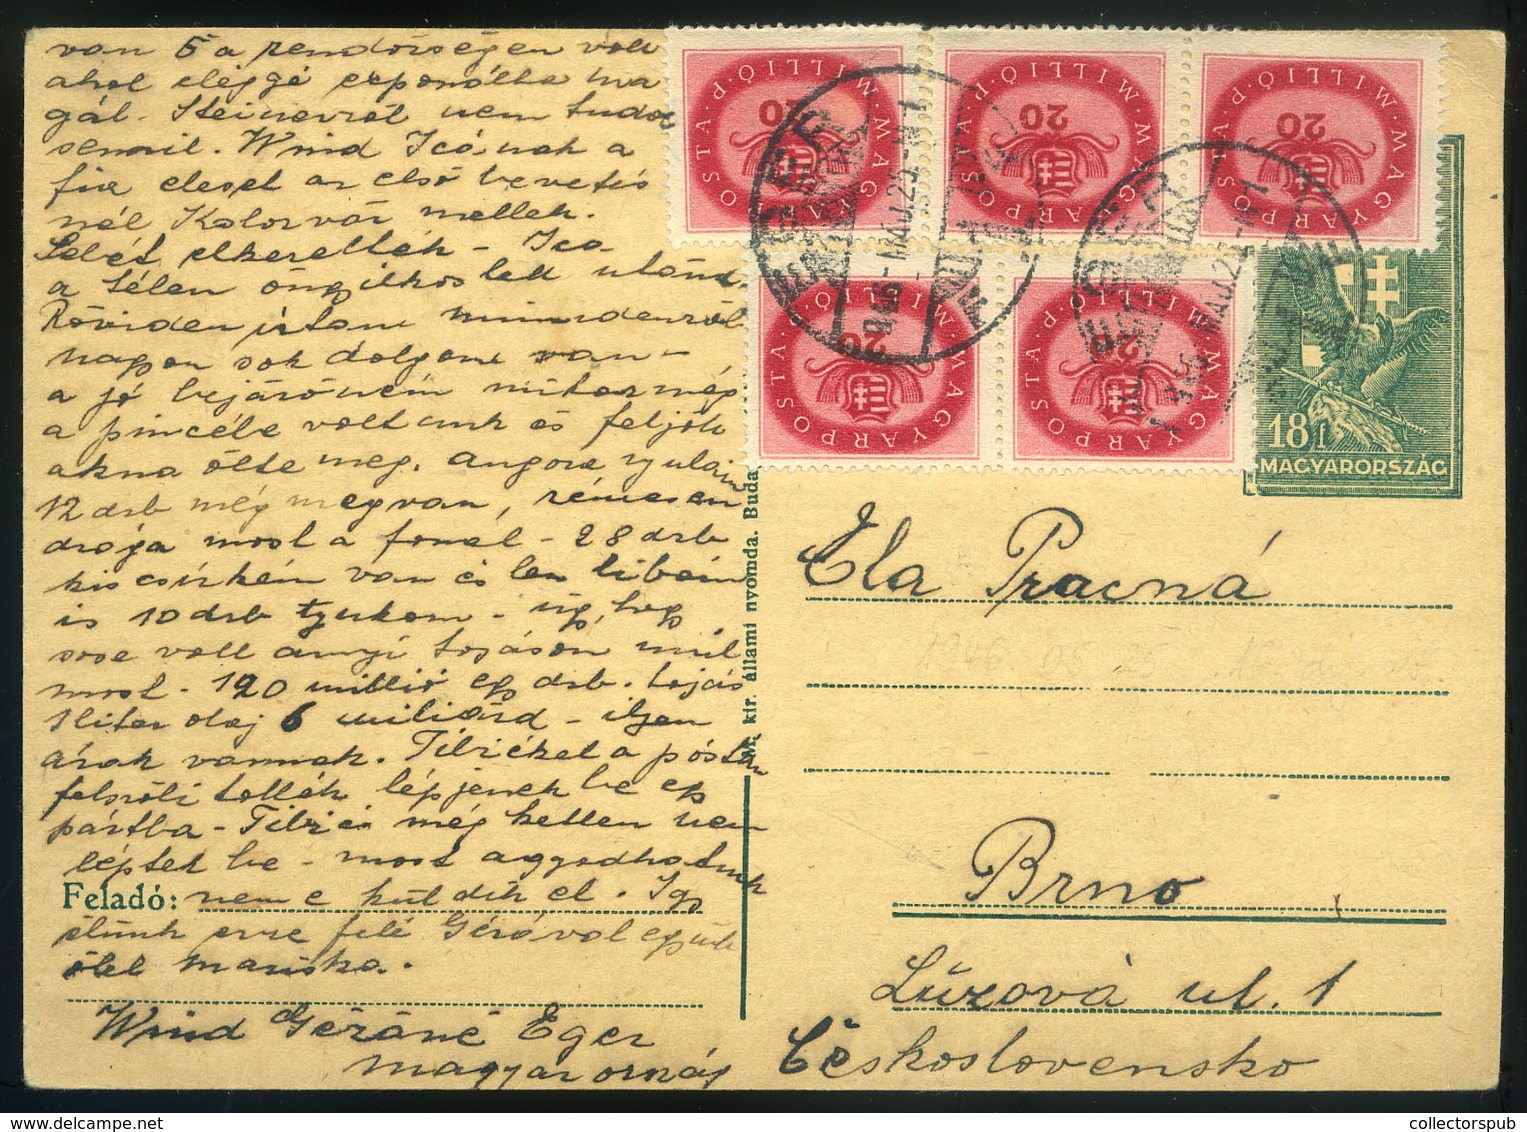 van ő a rendőrségen volt
ahol eléggé exponálta ma
gát. Steinerről nem tudok
semmit. Wind Icónak a
fia elesett az első bevetés
nél Kolozsvár mellett.
a télen öngyilkos lett utána
Röviden írtam mindenről
nagyon sok dolgom van -
a jó bejárónőm mikor még
a pincébe voltunk és feljött
akna ölte meg. angora nyulam
12 drb még megvan, rémesen
drága most a fonal - 28 drb
kis csirkém van és
is 10 drb tyukom - úgy, hogy
sose volt annyi tojásom mint
most - 120 millió egy drb. tojás
1 liter olaj 6 miliárd - ilyen
árak vannak. Tibiéket a póstán
felszólították lépjenek be egy
pártba - Tibi és még ketten nem
léptek be - most aggodhatunk
Feladó: nem e küldik el. Igy
élünk erre felé Gézával együtt
ölel Mariska.
Wind Gézáné Eger
Magyarország
M. kir. állami nyomda. Buda
MAGYAR POSTA
20
MILLIÓ P.
MAGYAR POSTA
20
MILLIÓ P.
MAGYAR POSTA
20
MILLIÓ P.
MAGYAR POSTA
20
MILLIÓ P.
MAGYAR POSTA
20
MILLIÓ P.
EGER
1946 MÁJ. 25
EGER
1946 MÁJ. 25
18 f
MAGYARORSZÁG
Ela Pracná
Brno
Lúzová ul. 1
Československo
collectorspub